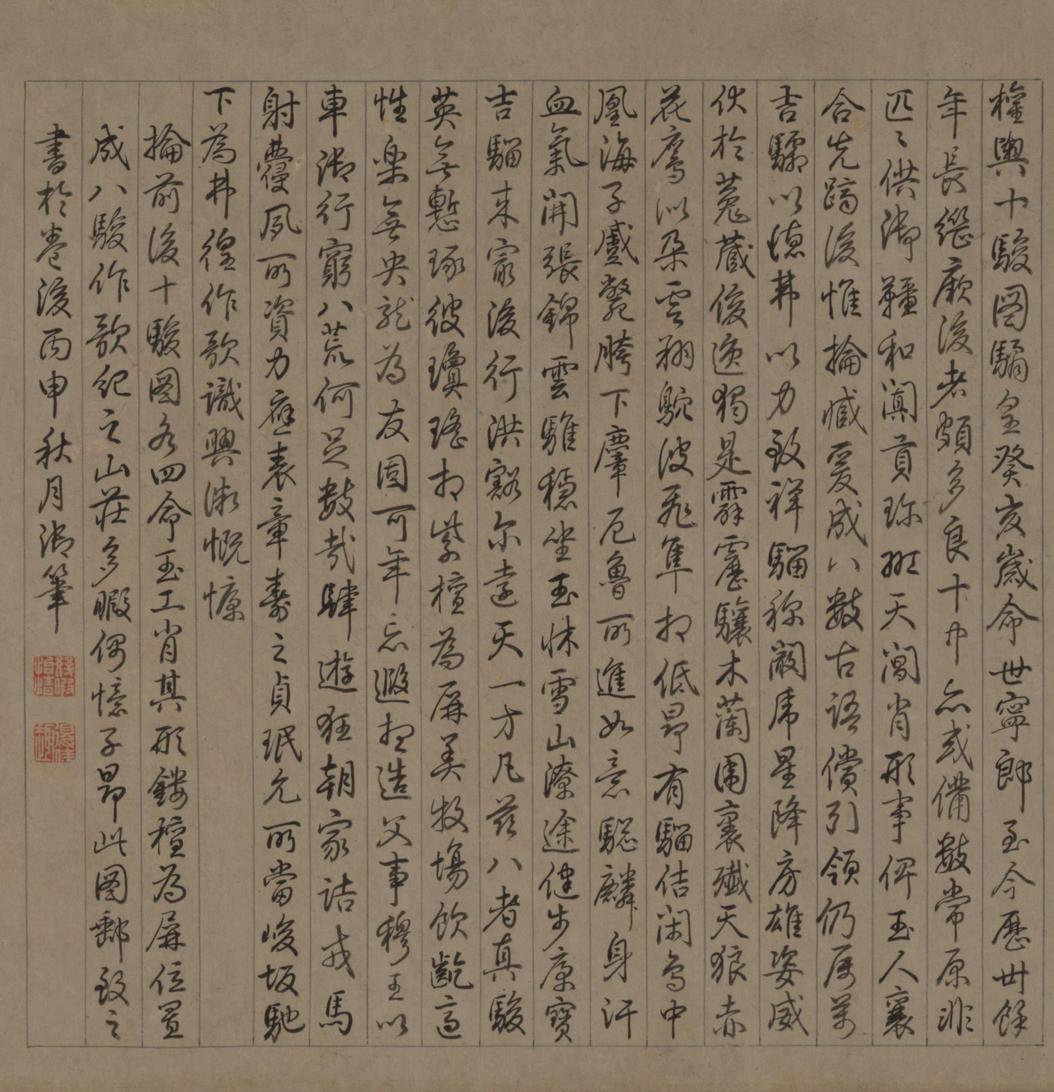 權輿十駿圖驈皇癸亥歲命世寧郎至今歷卅餘
年長繼厥後者頗多良十中亦或備數常原非
匹〻供御韁和闐貢珎班天閑肖形事俾玉人襄
合先蹄後惟掄臧爰成八數古語償引領仍居萬
吉驦以德弗以力致祥騮称闞虎星降房雄姿威
伏於菟藏俊逸獨是霹靂驤木蘭圍裏殲天狼赤
花鷹以朶雲翔駝波飛隼相低昂有騮佶閑烏中
凰海子蹙鼈胯下麞厄魯所進如意驄麟身汗
血氣開張錦雲騅穩坐玉牀雪山潦途健步康寶
吉騮来最後行洪豁尔達天一方凡茲八者真駿
英無慙琢彼瓊瑤相紫檀為屏美牧場飲齕適
性樂無央龍為友固可年忘遐想造父事穆王以
車御行窮八荒何足數哉肆遊狂朝家詰戎馬
射蘷夙所資力應表章壽之貞珉允所當峻坂馳
下為弗徨作歌識興漱慨慷
掄前後十駿圖各四命玉工肖其形鏤檀為屏位置
成八駿作歌紀之山莊多暇偶憶子昂此圖郵致之
書於卷後丙申秋月御筆